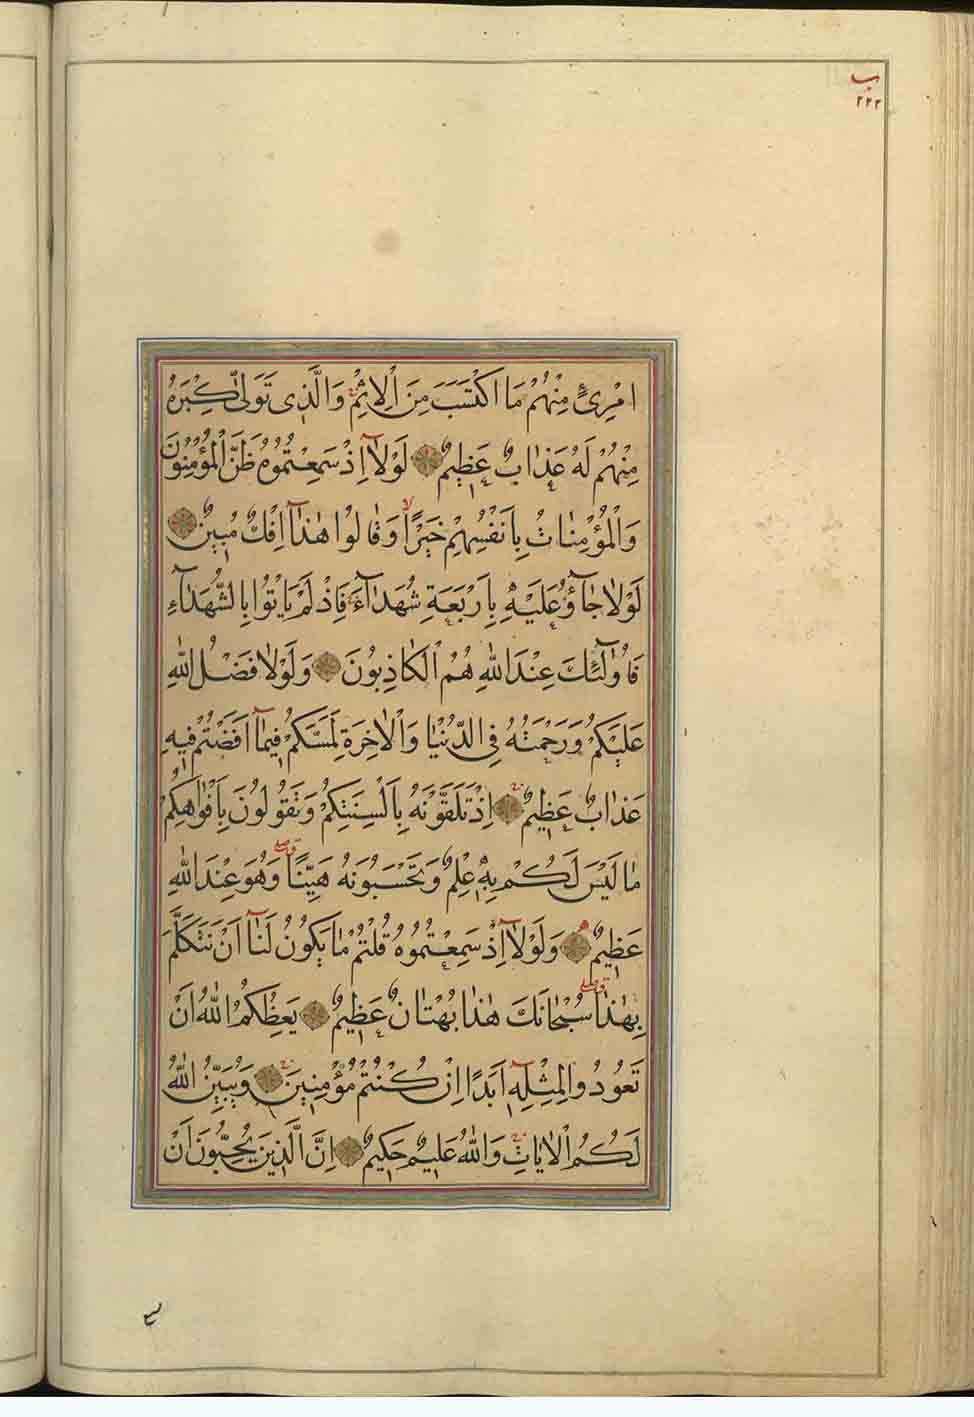 ب
٢٢٢
امْرِئٍ مِنْهُمْ مَا اكْتَسَبَ مِنَ الْاِثْمِ وَالَّذٖى تَوَلّٰى كِبْرَهُ
مِنْهُمْ لَهُ عَذَابٌ عَظٖيمٌ لَوْلَآ اِذْ سَمِعْتُمُوهُ ظَنَّ الْمُؤْمِنُونَ
وَالْمُؤْمِنَاتُ بِاَنْفُسِهِمْ خَيْرًا وَقَالُوا هٰذَآ اِفْكٌ مُبٖينٌ
لَوْلَا جَآؤُ عَلَيْهِ بِاَرْبَعَةِ شُهَدَآءَ فَاِذْ لَمْ يَاْتُوا بِالشُّهَدَآءِ
فَاُولٰٓئِكَ عِنْدَ اللّٰهِ هُمُ الْكَاذِبُونَ وَلَوْلَا فَضْلُ اللّٰهِ
عَلَيْكُمْ وَرَحْمَتُهُ فِى الدُّنْيَا وَالْاٰخِرَةِ لَمَسَّكُمْ فٖيمَآ اَفَضْتُمْ فٖيهِ
عَذَابٌ عَظٖيمٌ اِذْ تَلَقَّوْنَهُ بِاَلْسِنَتِكُمْ وَتَقُولُونَ بِاَفْوَاهِكُمْ
مَا لَيْسَ لَكُمْ بِهٖ عِلْمٌ وَتَحْسَبُونَهُ هَيِّنًا وَهُوَ عِنْدَ اللّٰهِ
عَظٖيمٌ وَلَوْلَآ اِذْ سَمِعْتُمُوهُ قُلْتُمْ مَا يَكُونُ لَنَآ اَنْ نَتَكَلَّمَ
بِهٰذَا سُبْحَانَكَ هٰذَا بُهْتَانٌ عَظٖيمٌ يَعِظُكُمُ اللّٰهُ اَنْ
تَعُودُوا لِمِثْلِهٖٓ اَبَدًا اِنْ كُنْتُمْ مُؤْمِنٖينَ وَيُبَيِّنُ اللّٰهُ
لَكُمُ الْاٰيَاتِ وَاللّٰهُ عَلٖيمٌ حَكٖيمٌ اِنَّ الَّذٖينَ يُحِبُّونَ اَنْ